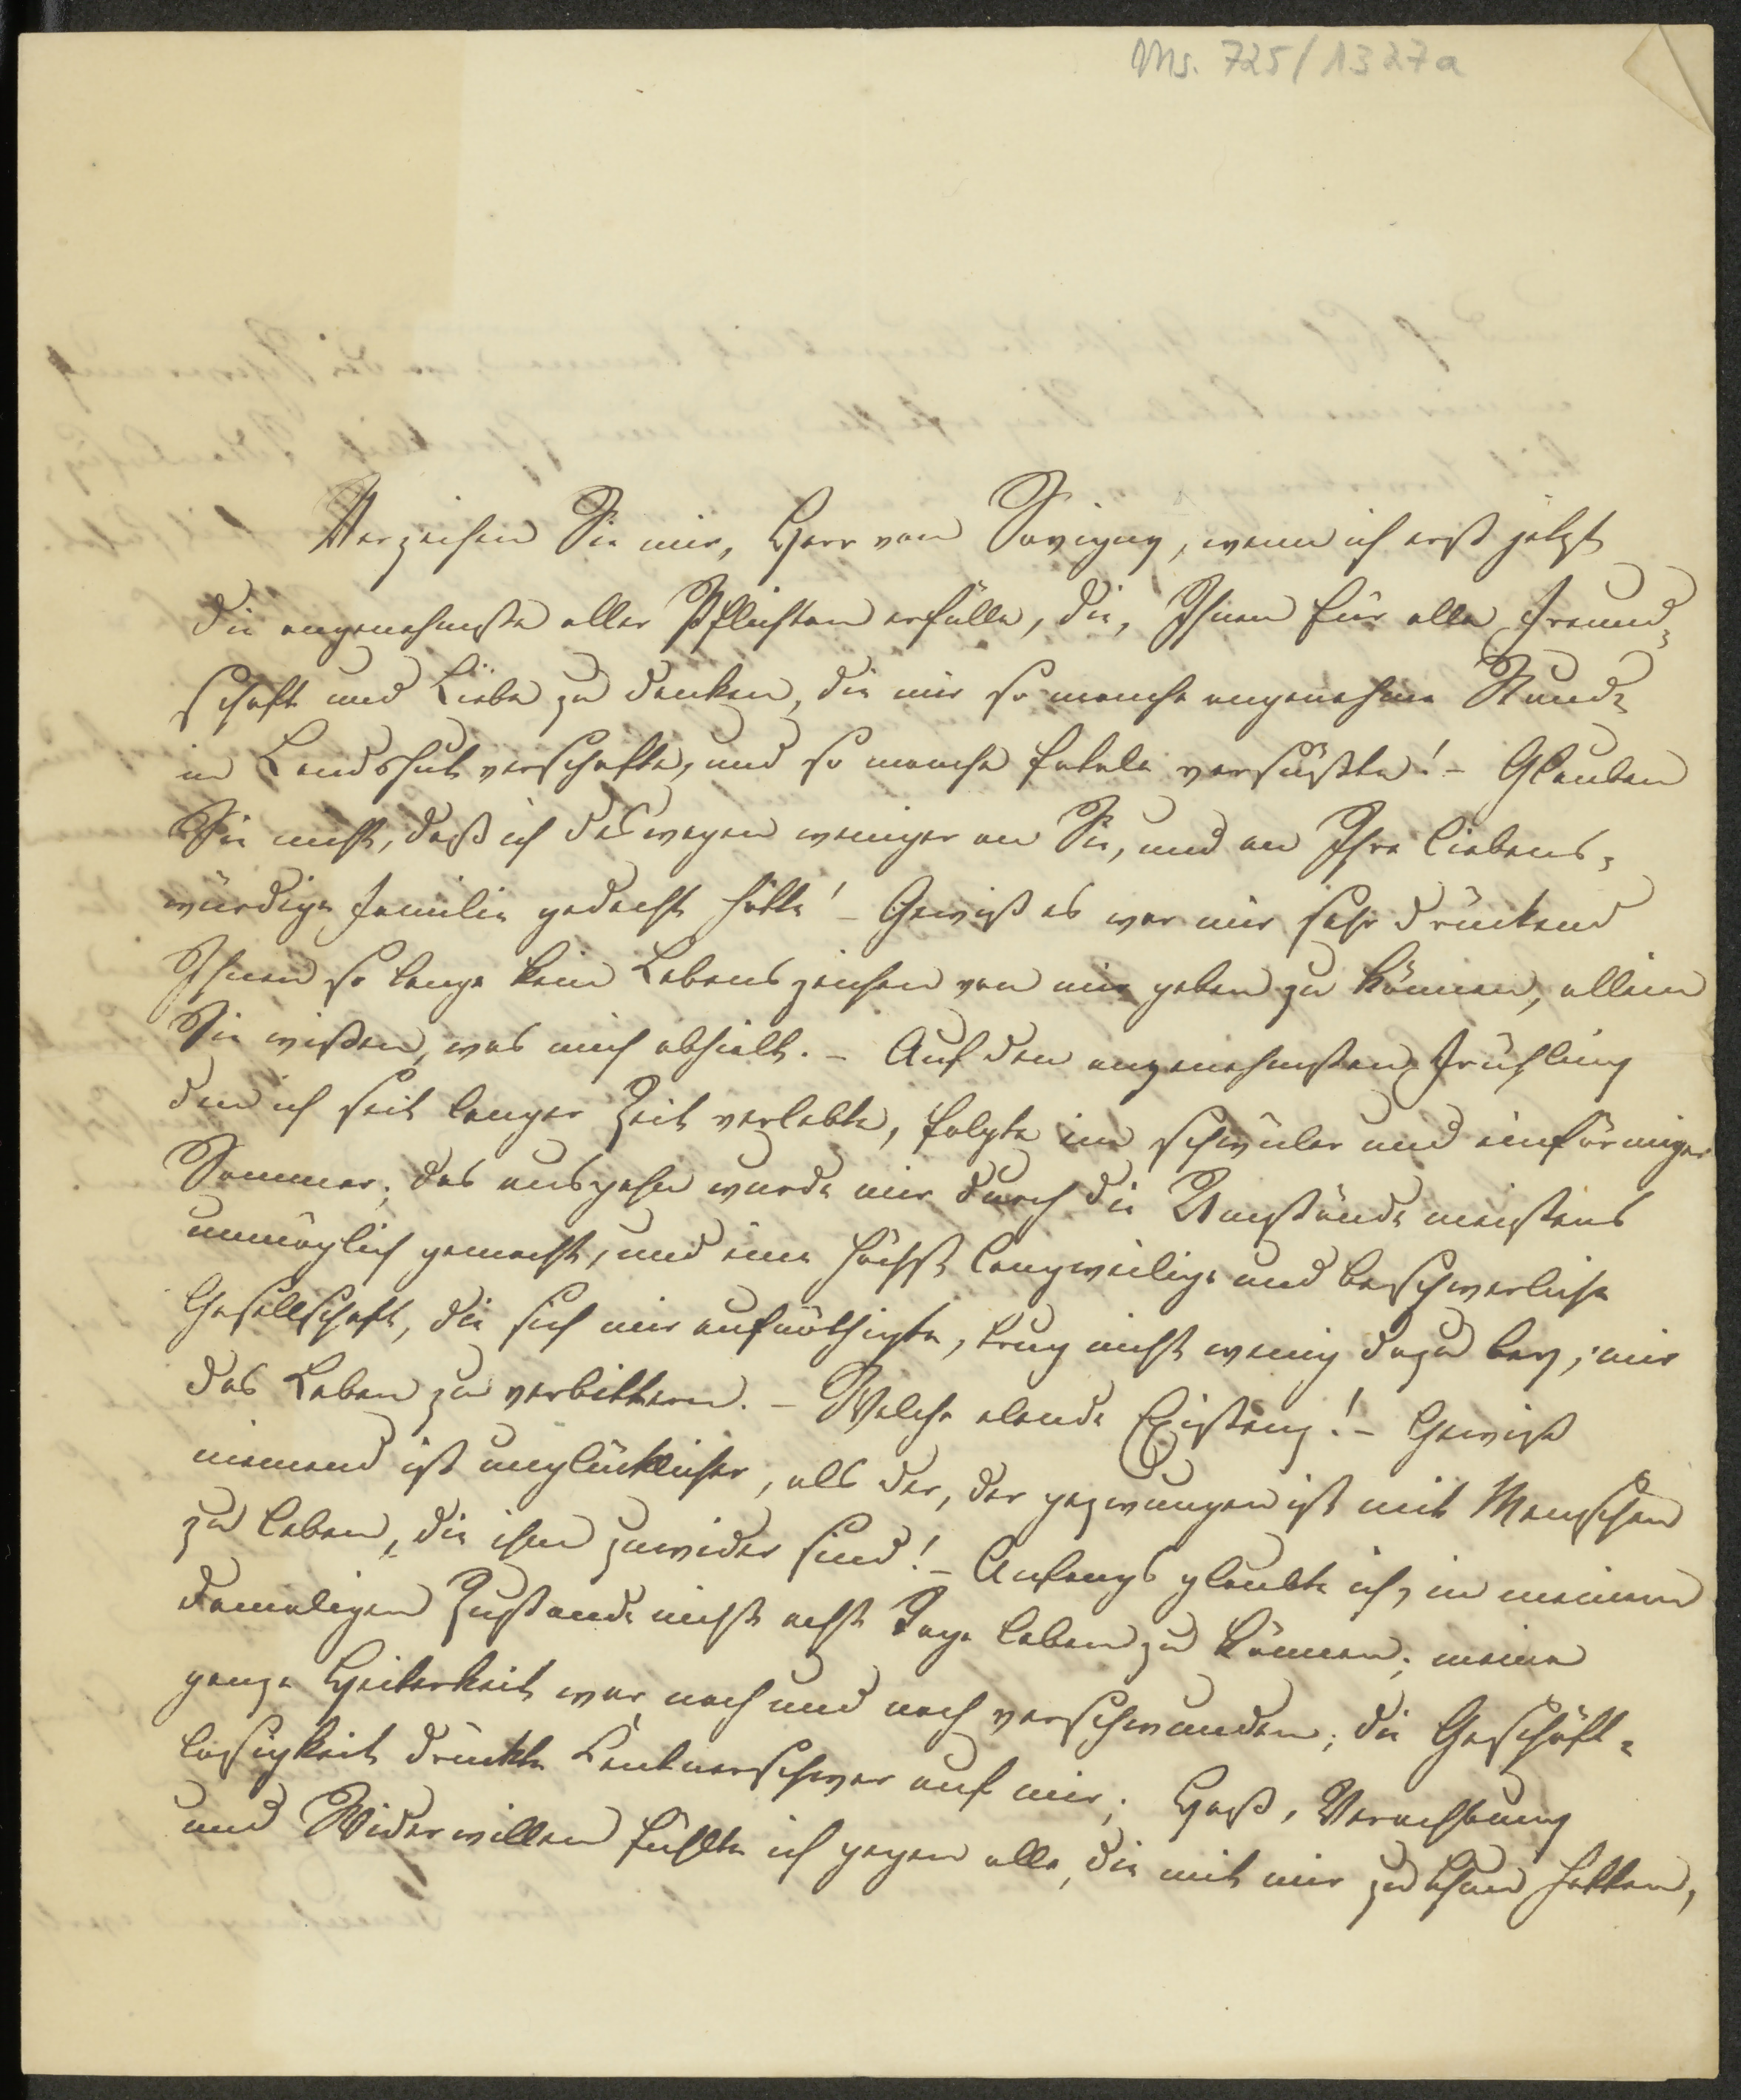 Ms. 725/1327a
Verzeihen Sie mir, Herr von Savigny, wenn ich erst jetzt
die angenehmste aller Pflichten erfülle, die, Ihnen für alle Freund-
schaft und Liebe zu danken, die mir so manche angenehme Stunde
in Landshut verschafte, und so manche fatale versüßte! – Glauben
Sie nicht, daß ich deswegen weniger an Sie, und an Ihre liebens-
würdige Familie gedacht hätte! – Gewiß es war mir sehr drückend
Ihnen so lange kein Lebenszeichen von mir geben zu können, allein
Sie wißen, was mich abhielt. – Auf den angenehmsten Frühling
den ich seit langer Zeit verlebte, folgte ein schwüler und einförmiger
Sommer; das ausgehn wurde mir durch die Umstände meistens
unmöglich gemacht, und eine höchst langweilige und beschwerliche
Gesellschaft, die sich mir aufnöthigte, trug nicht wenig dazu bey, mir
das Leben zu verbittern. – Welche elende Existenz! – Gewiß
niemand ist unglücklicher, als der, der gezwungen ist mit Menschen
zu leben, die ihm zuwider sind! – Anfangs glaubte ich, in meinem
damaligen Zustande nicht acht Tage leben zu können; meine
ganze Heiterkeit war nach und nach verschwunden; die Geschäft-
losigkeit drückte Centnerschwer auf mir; Haß, Verachtung
und Widerwillen fühlte ich gegen alle, die mit mir zu thun hatten,